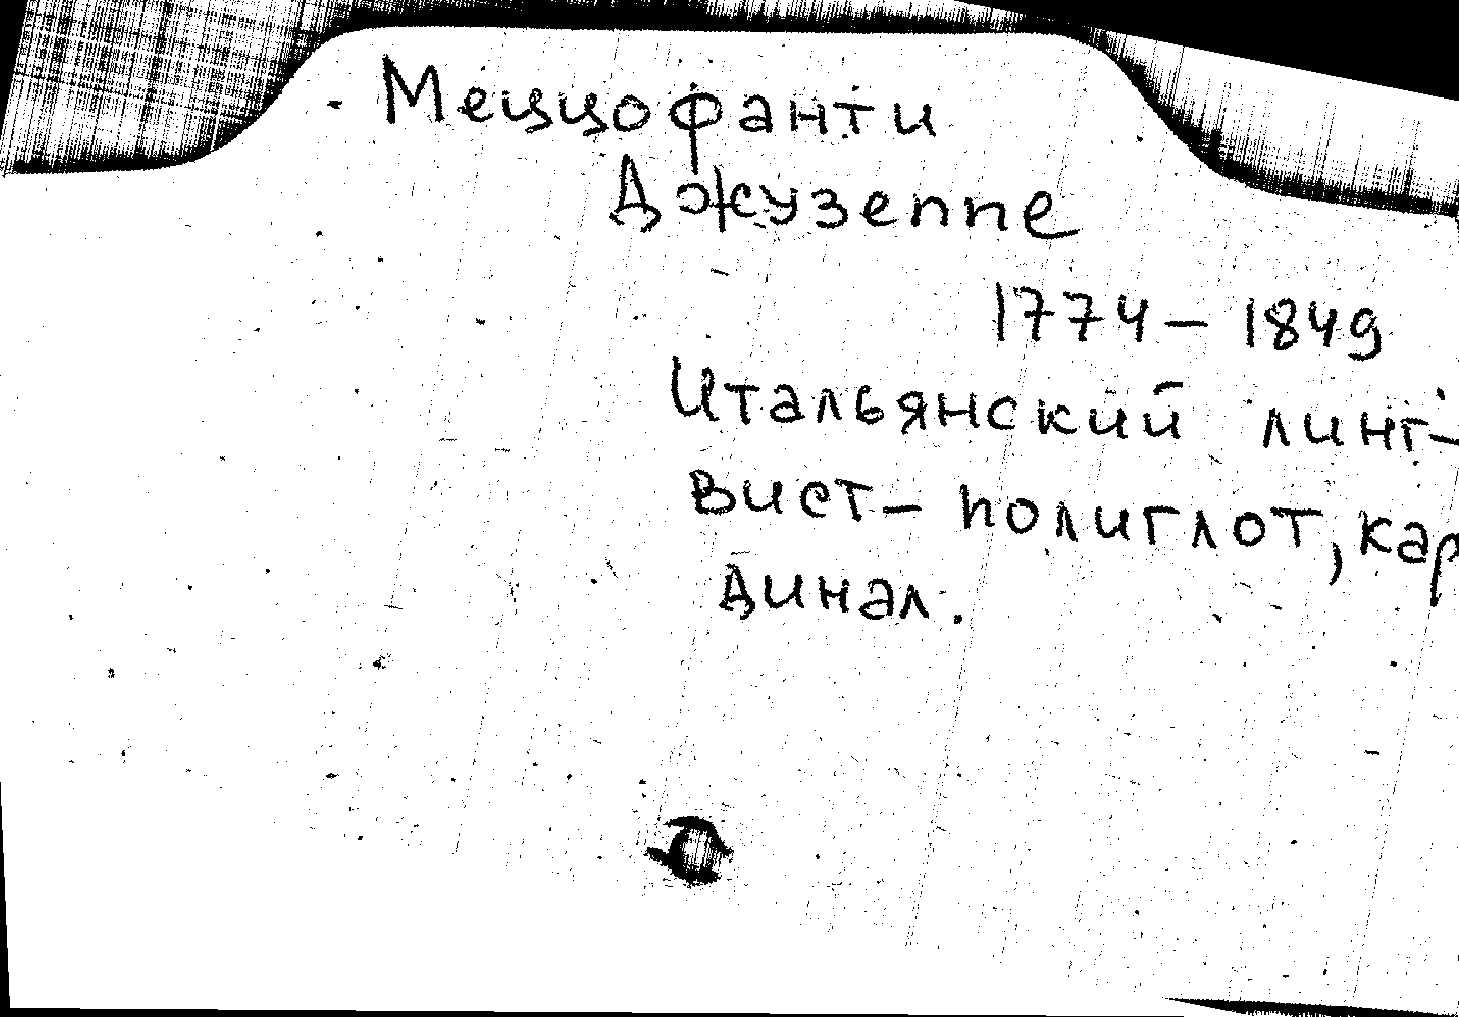 Меццофанти
Джузеппе
1774 – 1849
Итальянский линг-
вист – полиглот, кар
динал.